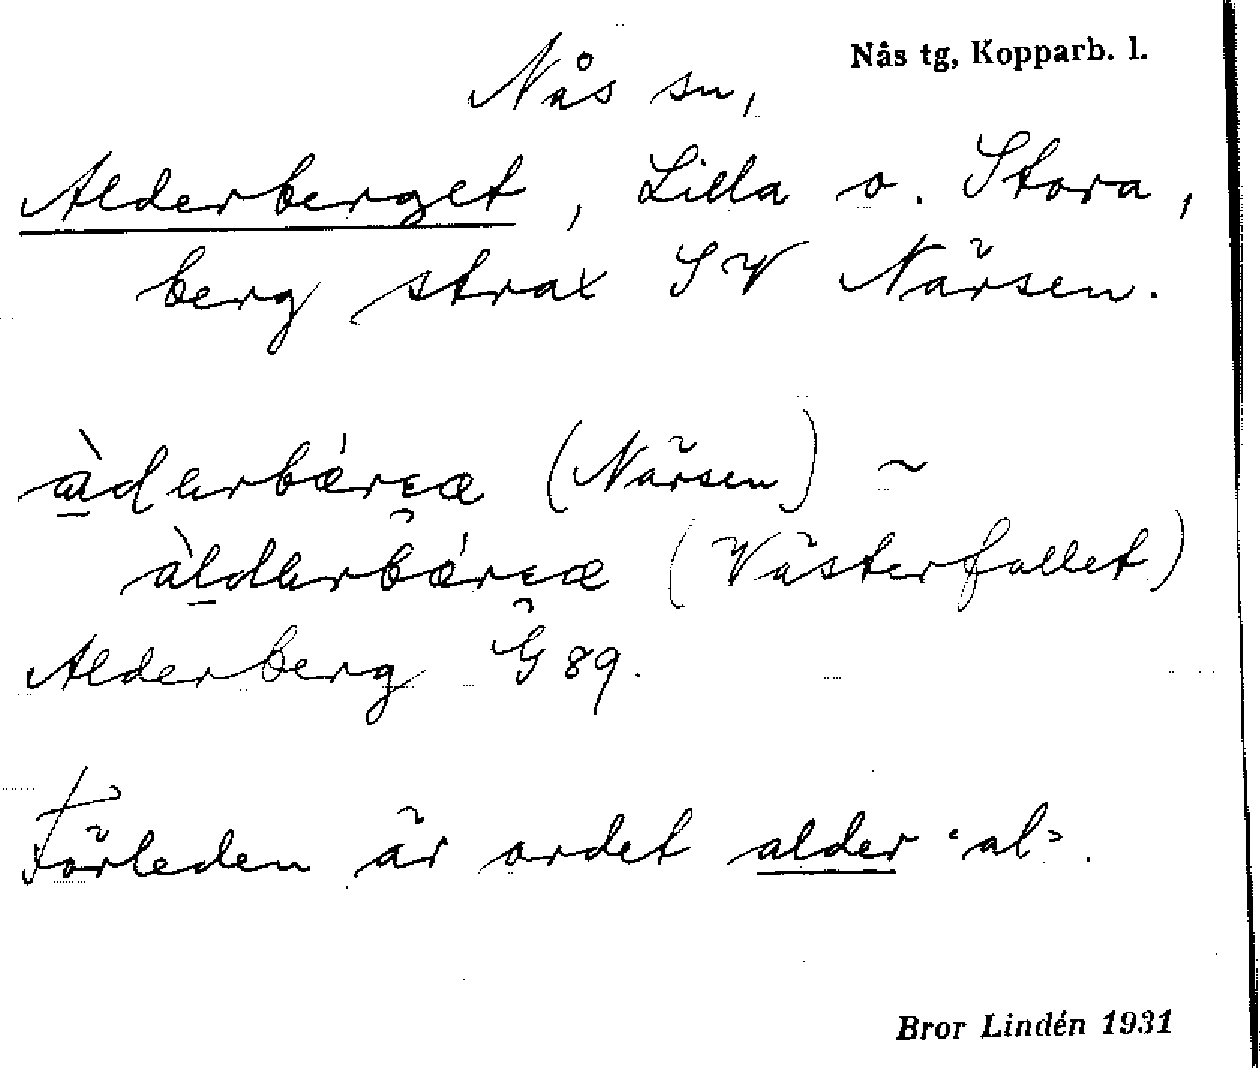 Nås tg, Kopparb. l.
Nås sn,
Alderberget, Lilla o. Stora,
berg strax SV Närsen.
(Närsen) ~
(Västerfallet)
Alderberg G 89.
Förleden är ordet alder 'al'.
Bror Lindén 1931